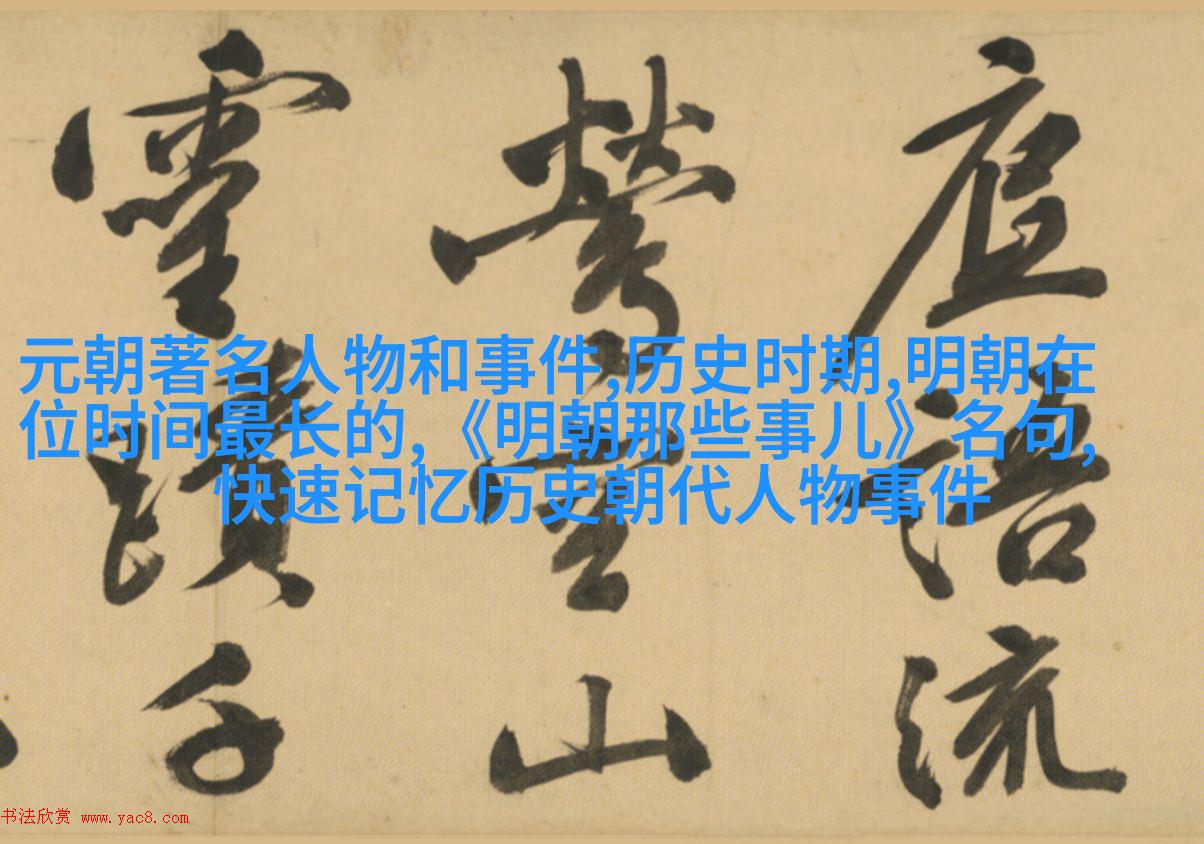 元朝著名人物和事件,历史时期,明朝在
位时间最长的,《明朝那些事儿》名句,
快速记忆历史朝代人物事件
語流
鶯空山
靈蹟千
书法欣赏 www.yac8.com